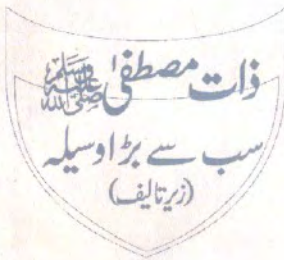 ذات مصطفیٰ صلی اللہ علیہ وسلم
سب سے بڑا وسیلہ
(زیر تالیف)